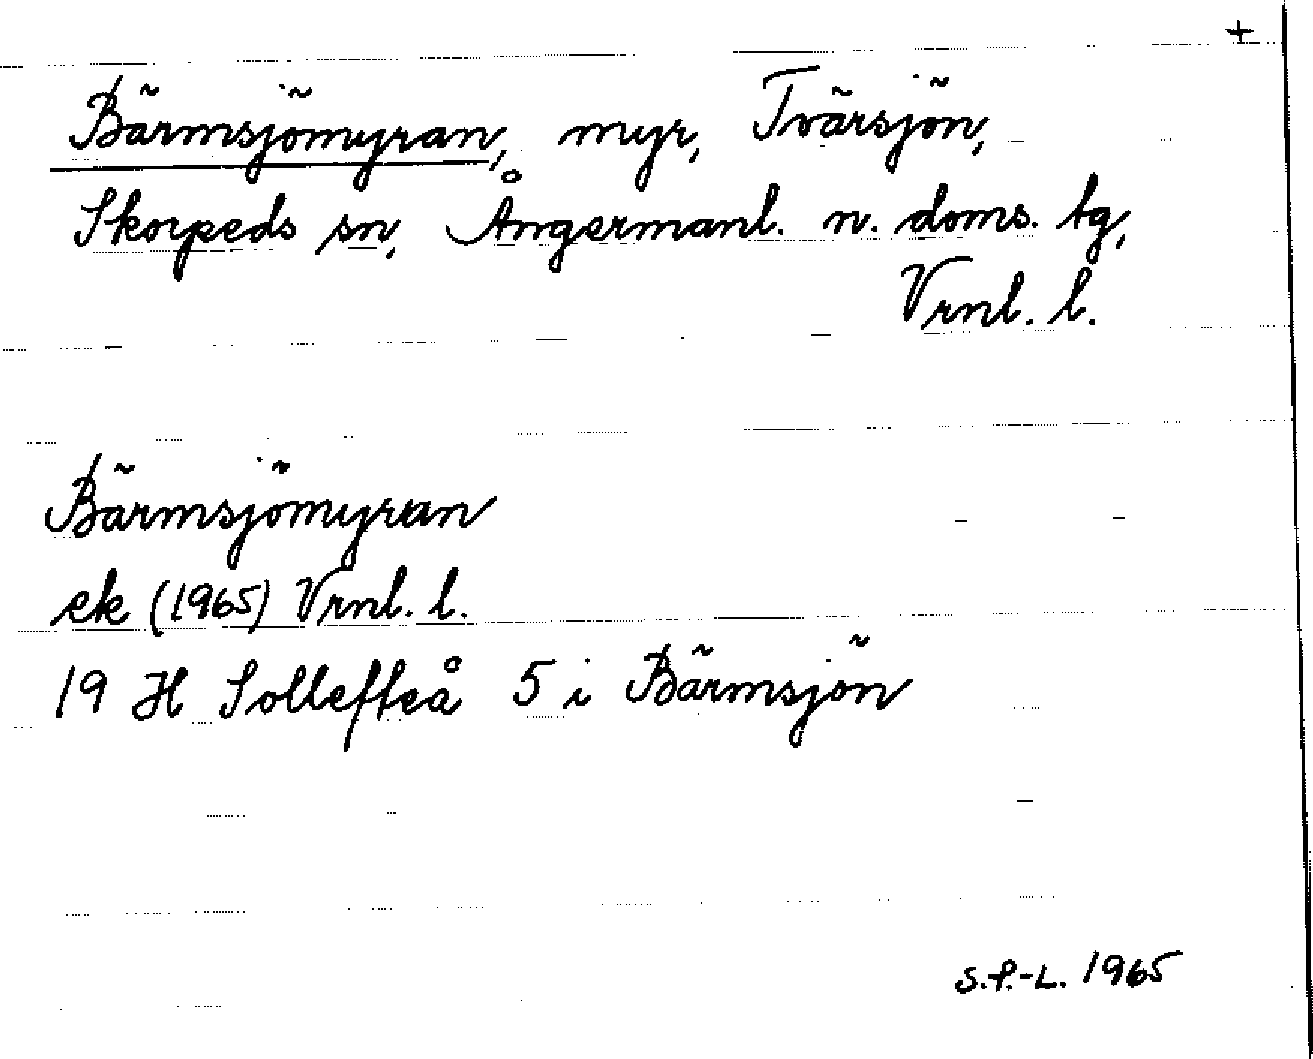 +
Bärmsjömyran, myr, Tvärsjön,
Skorpeds sn, Ångermanl. n. doms. tg,
Vrnl. l.
Bärmsjömyran
ek (1965) Vrnl. l.
19 H Sollefteå 5 i Bärmsjön
S.P.-L. 1965